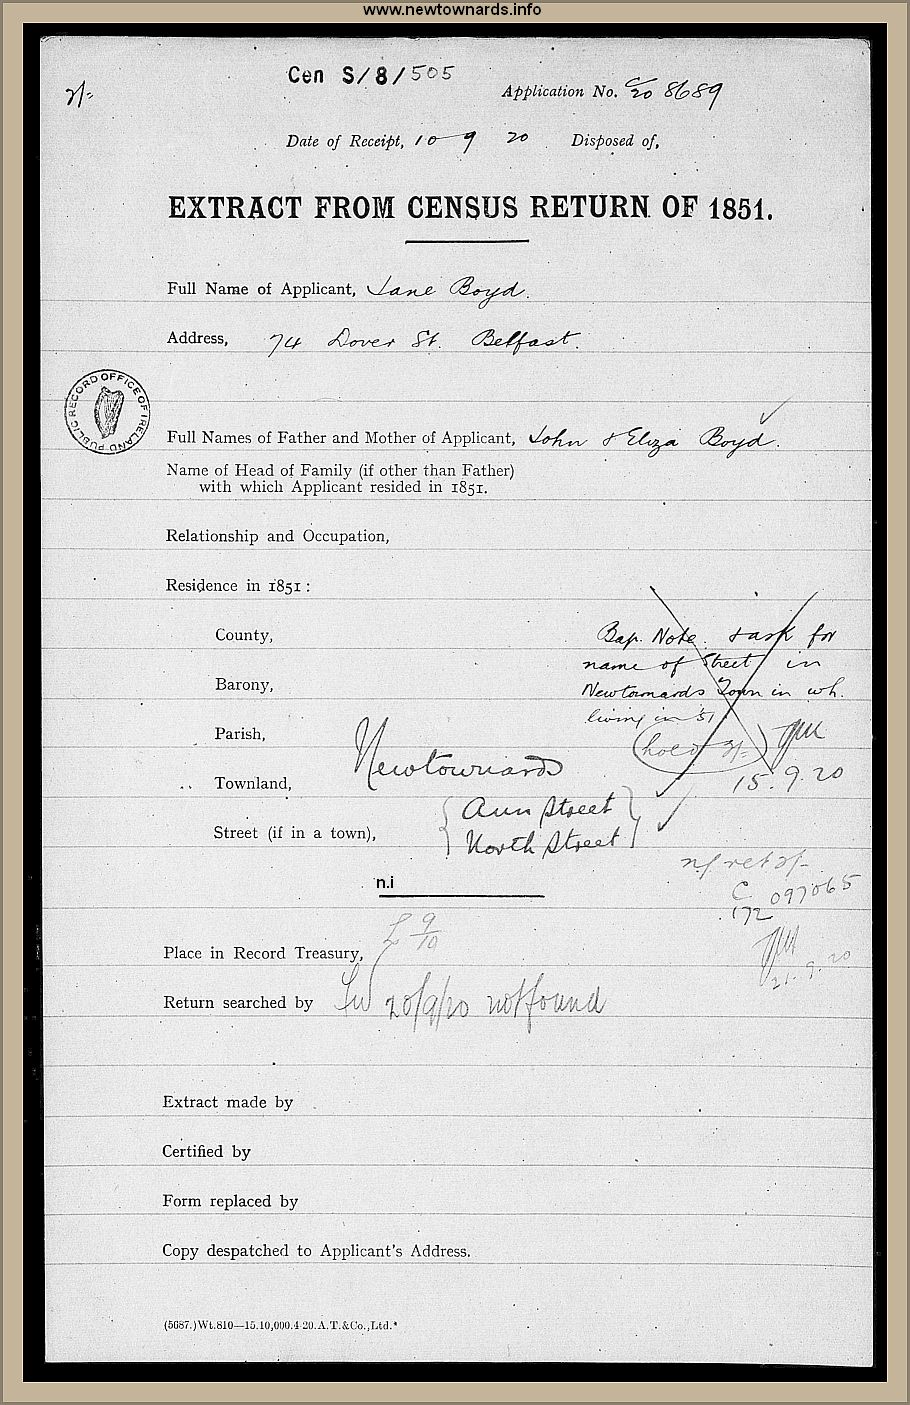 www.newtownards.info
Cen S/8/505
2/-
Application No. C/20 8689
Date of Receipt, 10 9 20 Disposed of,
EXTRACT FROM CENSUS RETURN OF 1851.
Full Name of Applicant, Jane Boyd.
Address, 74 Dover St. Belfast.
PUBLIC RECORD OFFICE OF IRELAND
Full Names of Father and Mother of Applicant, John & Eliza Boyd.
Name of Head of Family (if other than Father)
with which Applicant resided in 1851.
Relationship and Occupation,
Residence in 1851:
County,
Bap. Note. & ask for
name of Street in
Barony,
Newtownards Town in wh.
living in '51
Parish,
(hold 2/-)
Newtownards
Townland,
15.9.20
Ann Street
Street (if in a town),
North Street
n/ ret 2/-
n.i
C 097065
172
£ 9/10
Place in Record Treasury,
21.9.20
Return searched by 20/9/20 not found
Extract made by
Certified by
Form replaced by
Copy despatched to Applicant's Address.
(5687.)Wt.810—15.10,000.4-20.A.T.&Co.,Ltd.*